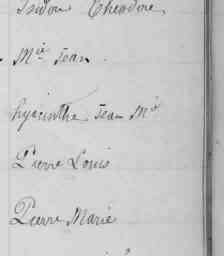 Isidore Theodore,
Mie Jean
hyacinthe Jean Mie
Pierre Louis
Pierre Marie